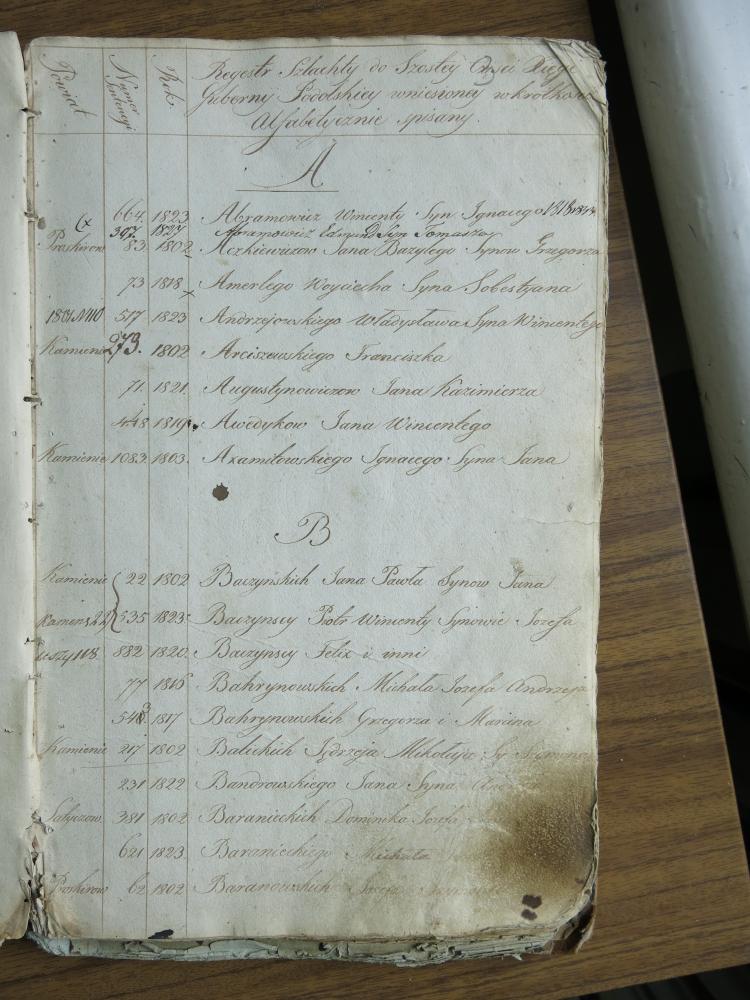 Powiat Numer Sentencyi Rok Regestr Szlachty do Szostey Części Xięgi
Guberny Podolskiey wniesioney w krotkości
Alfabetycznie spisany.
A
664. 1823 Abramowicz Wincenty Syn Ignacego
307. 1827 Abramowicz Edmund Syn Tomasza
Proskirow 83. 1802 Aczkiewiczow Jana Bazylego Synow Grzegorza
73 1818 Amerlego Woyciecha Syna Sobestyana
517 1823 Andrzejowskiego Władysława Syna Wincentego
Kamienie 273. 1802 Arciszewskiego Franciszka
71. 1821. Augustynowiczow Jana Kazimierza
448 1819 Awedykow Jana Wincentego
Kamienie 1083. 1803. Axamitowskiego Ignacego Syna Jana
B
Kamienie 22 1802 Baczynskich Jana Pawła Synow Jana
Kamen 535 1823 Baczynscy Piotr Wincenty Synowie Jozefa
882 1820. Baczynscy Felix i inni
77 1816 Bahrynowskich Michała Jozefa Andrzeja
548 1817 Bahrynowskich Grzegorza i Marcina
Kamienie 217 1802 Balickich Jędrzeja Mikołaja Sy Szymona
231 1822 Bandrowskiego Jana Syna
Latyczow 381 1802 Baranieckich Dominika Jozefa
621 1823. Baranieckiego Michała
Proskirow 62 1802 Baranowskich Jozefa